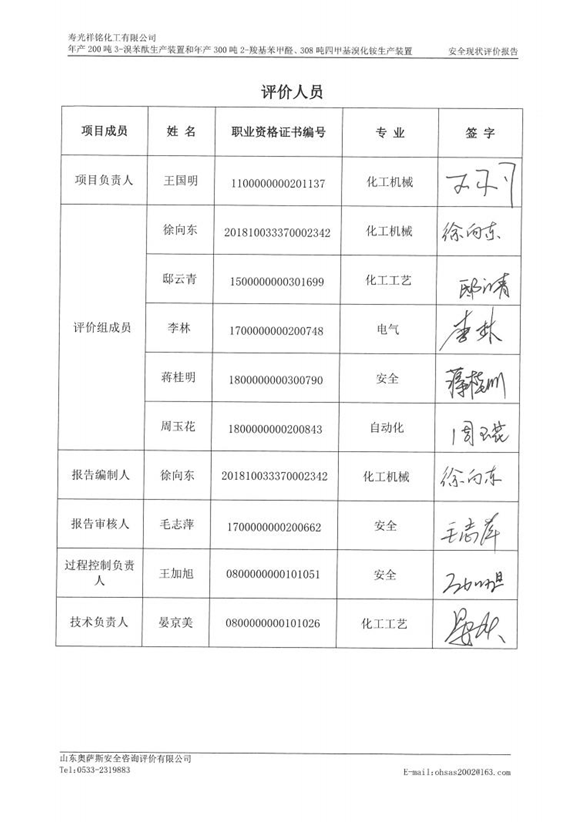 寿光祥铭化工有限公司
年产200吨3-溴苯酞生产装置和年产300吨2-羧基苯甲醛、308吨四甲基溴化铵生产装置 安全现状评价报告
评价人员
项目成员 姓名 职业资格证书编号 专业 签字
项目负责人 王国明 1100000000201137 化工机械
评价组成员 徐向东 201810033370002342 化工机械 徐向东
邸云青 1500000000301699 化工工艺 邸云青
李林 1700000000200748 电气 李林
蒋桂明 1800000000300790 安全 蒋桂明
周玉花 1800000000200843 自动化 周玉花
报告编制人 徐向东 201810033370002342 化工机械 徐向东
报告审核人 毛志萍 1700000000200662 安全 毛志萍
过程控制负责
人 王加旭 0800000000101051 安全
技术负责人 晏京美 0800000000101026 化工工艺
山东奥萨斯安全咨询评价有限公司
Tel:0533-2319883 E-mail:ohsas2002@163.com